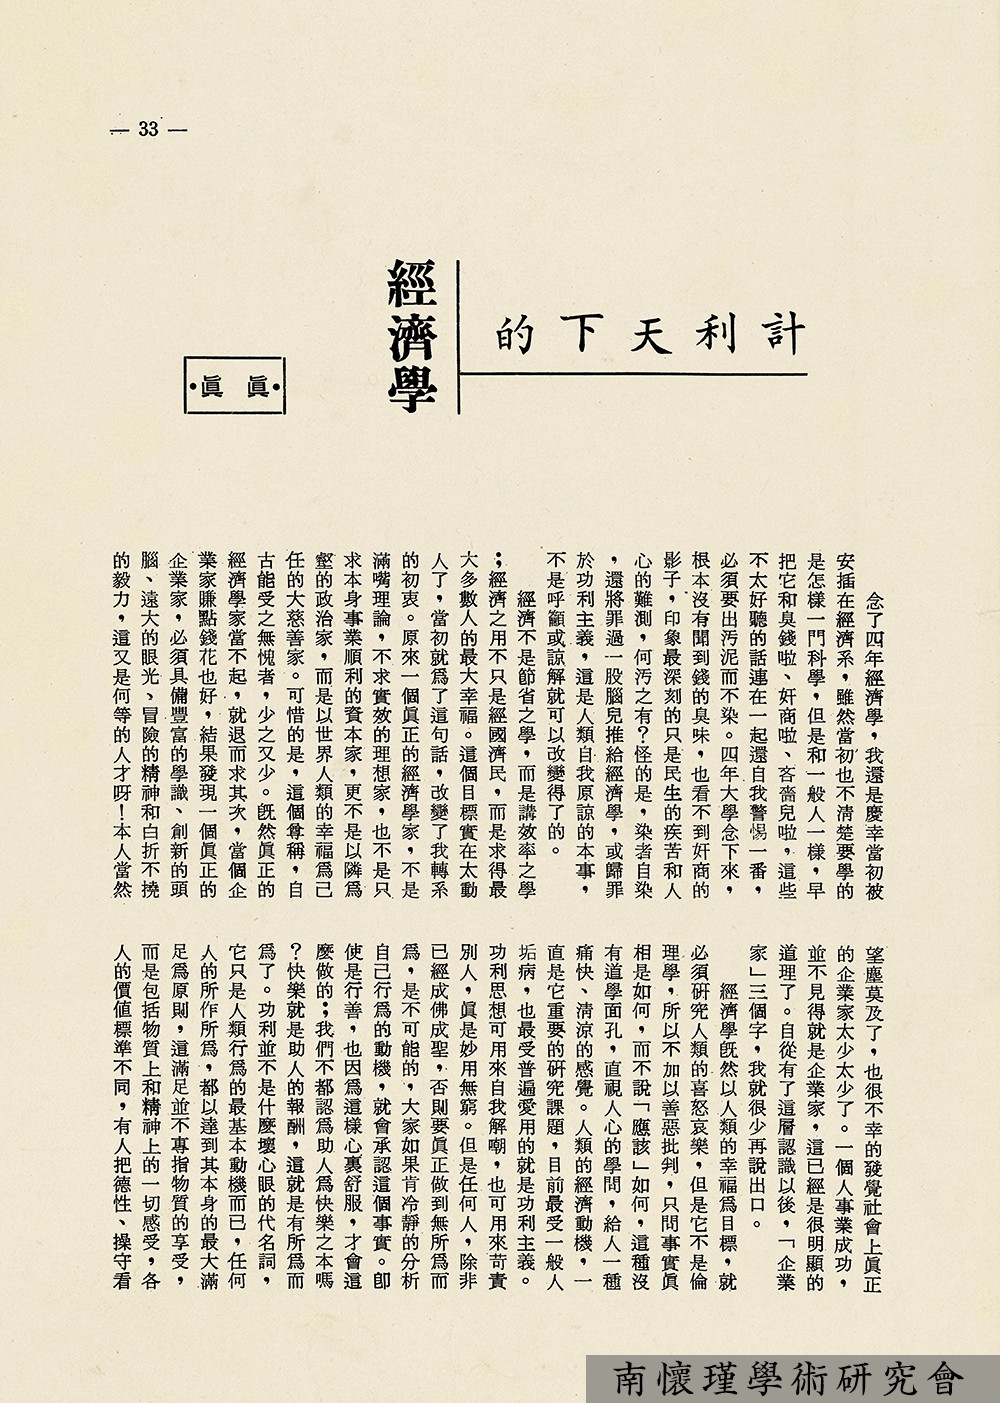 — 33 —
計利天下的
經濟學
·眞眞·
念了四年經濟學，我還是慶幸當初被
安插在經濟系，雖然當初也不清楚要學的
是怎樣一門科學，但是和一般人一樣，早
把它和臭錢啦、奸商啦、吝嗇兒啦，這些
不太好聽的話連在一起還自我警惕一番，
必須要出汚泥而不染。四年大學念下來，
根本沒有聞到錢的臭味，也看不到奸商的
影子，印象最深刻的只是民生的疾苦和人
心的難測，何汚之有？怪的是，染者自染
，還將罪過一股腦兒推給經濟學，或歸罪
於功利主義，這是人類自我原諒的本事，
不是呼籲或諒解就可以改變得了的。
經濟不是節省之學，而是講效率之學
；經濟之用不只是經國濟民，而是求得最
大多數人的最大幸福。這個目標實在太動
人了，當初就爲了這句話，改變了我轉系
的初衷。原來一個眞正的經濟學家，不是
滿嘴理論，不求實效的理想家，也不是只
求本身事業順利的資本家，更不是以隣爲
壑的政治家，而是以世界人類的幸福爲己
任的大慈善家。可惜的是，這個尊稱，自
古能受之無愧者，少之又少。旣然眞正的
經濟學家當不起，就退而求其次，當個企
業家賺點錢花也好，結果發現一個眞正的
企業家，必須具備豐富的學識、創新的頭
腦、遠大的眼光、冒險的精神和白折不撓
的毅力，這又是何等的人才呀！本人當然
望塵莫及了，也很不幸的發覺社會上眞正
的企業家太少太少了。一個人事業成功，
並不見得就是企業家，這已經是很明顯的
道理了。自從有了這層認識以後，「企業
家」三個字，我就很少再說出口。
經濟學旣然以人類的幸福爲目標，就
必須硏究人類的喜怒哀樂，但是它不是倫
理學，所以不加以善惡批判，只問事實眞
相是如何，而不說「應該」如何，這種沒
有道學面孔，直視人心的學問，給人一種
痛快、淸涼的感覺。人類的經濟動機，一
直是它重要的硏究課題，目前最受一般人
垢病，也最受普遍愛用的就是功利主義。
功利思想可用來自我解嘲，也可用來苛責
別人，眞是妙用無窮。但是任何人，除非
已經成佛成聖，否則要眞正做到無所爲而
爲，是不可能的，大家如果肯冷靜的分析
自己行爲的動機，就會承認這個事實。卽
使是行善，也因爲這樣心裏舒服，才會這
麼做的；我們不都認爲助人爲快樂之本嗎
？快樂就是助人的報酬，這就是有所爲而
爲了。功利並不是什麼壞心眼的代名詞，
它只是人類行爲的最基本動機而已，任何
人的所作所爲，都以達到其本身的最大滿
足爲原則，這滿足並不專指物質的享受，
而是包括物質上和精神上的一切感受，各
人的價値標準不同，有人把德性、操守看
南懷瑾學術研究會